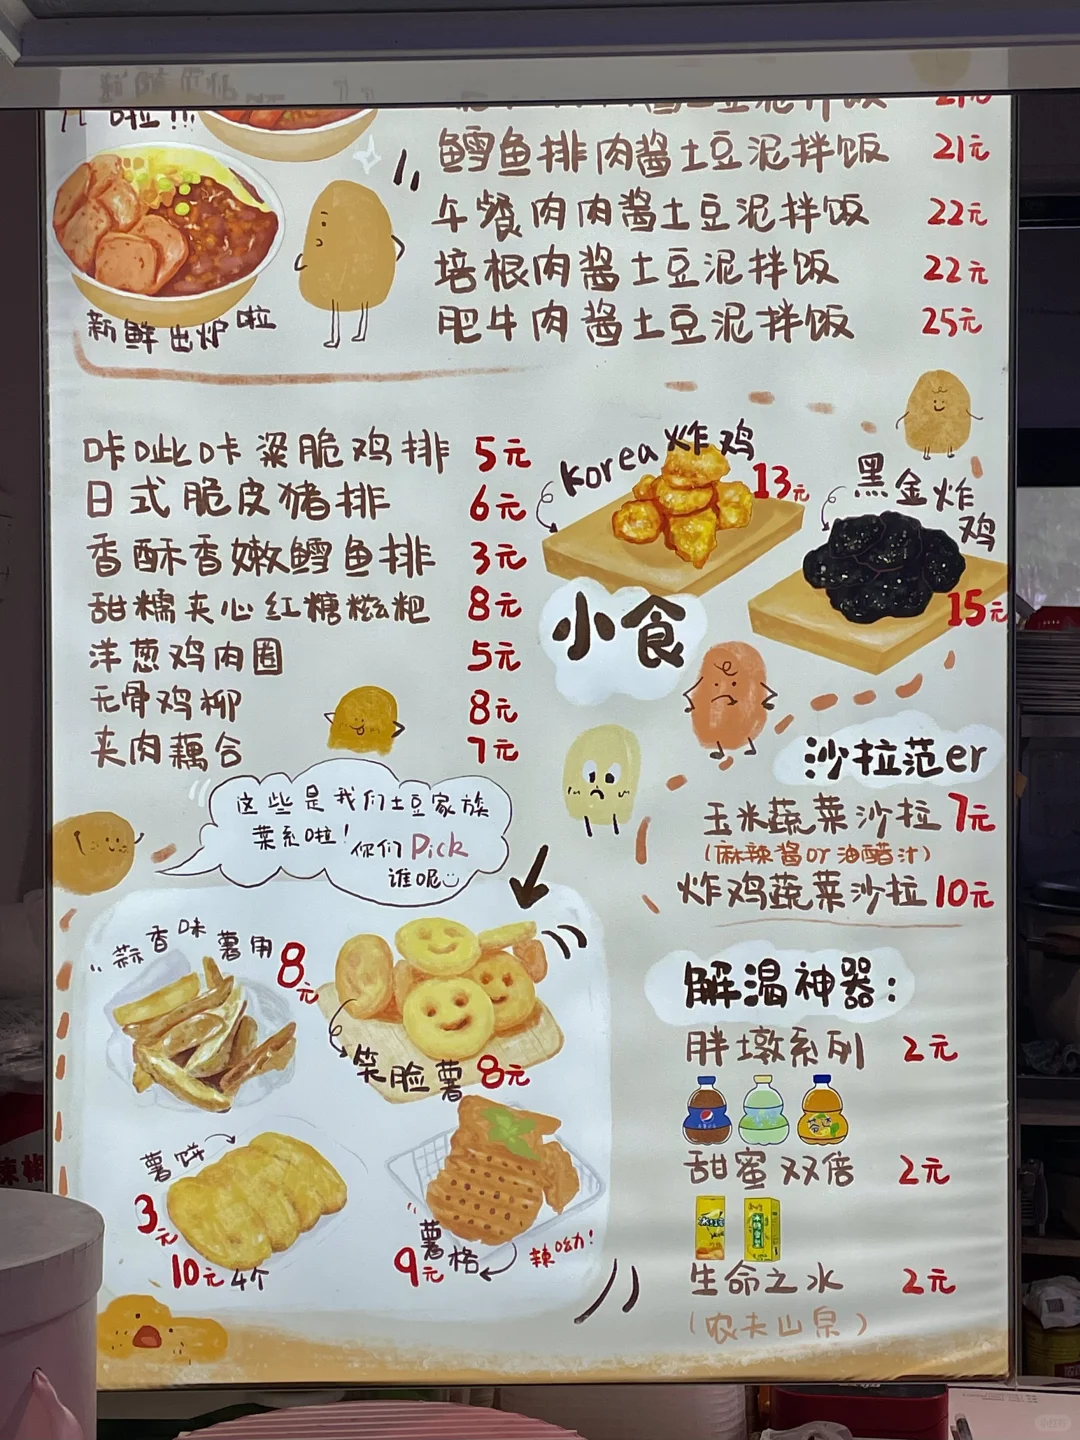 啦!!!
土豆泥拌饭 21元
鳕鱼排肉酱土豆泥拌饭 21元
午餐肉肉酱土豆泥拌饭 22元
培根肉酱土豆泥拌饭 22元
肥牛肉酱土豆泥拌饭 25元
新鲜出炉啦
咔呲咔粱脆鸡排 5元
日式脆皮猪排 6元
香酥香嫩鳕鱼排 3元
甜糯夹心红糖糍粑 8元
洋葱鸡肉圈 5元
无骨鸡柳 8元
夹肉藕合 7元
Korea炸鸡
13元
黑金炸鸡
15元
小食
沙拉范er
玉米蔬菜沙拉 7元
(麻辣酱or油醋汁)
炸鸡蔬菜沙拉 10元
这些是我们土豆家族
菜系啦! 你们Pick
谁呢
蒜香味薯角
8元
笑脸薯 8元
薯饼
3元
10元4个
薯格
9元
辣呦!
解渴神器:
胖墩系列 2元
甜蜜双倍 2元
生命之水 2元
(农夫山泉)
小红书